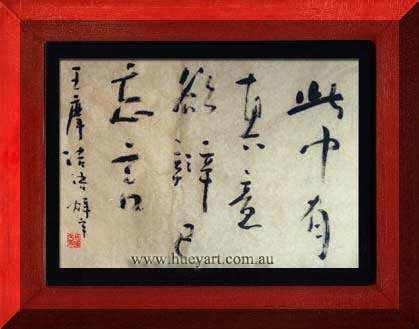 此中有
真意
欲辯已
忘言
王摩诘
www.hueyart.com.au